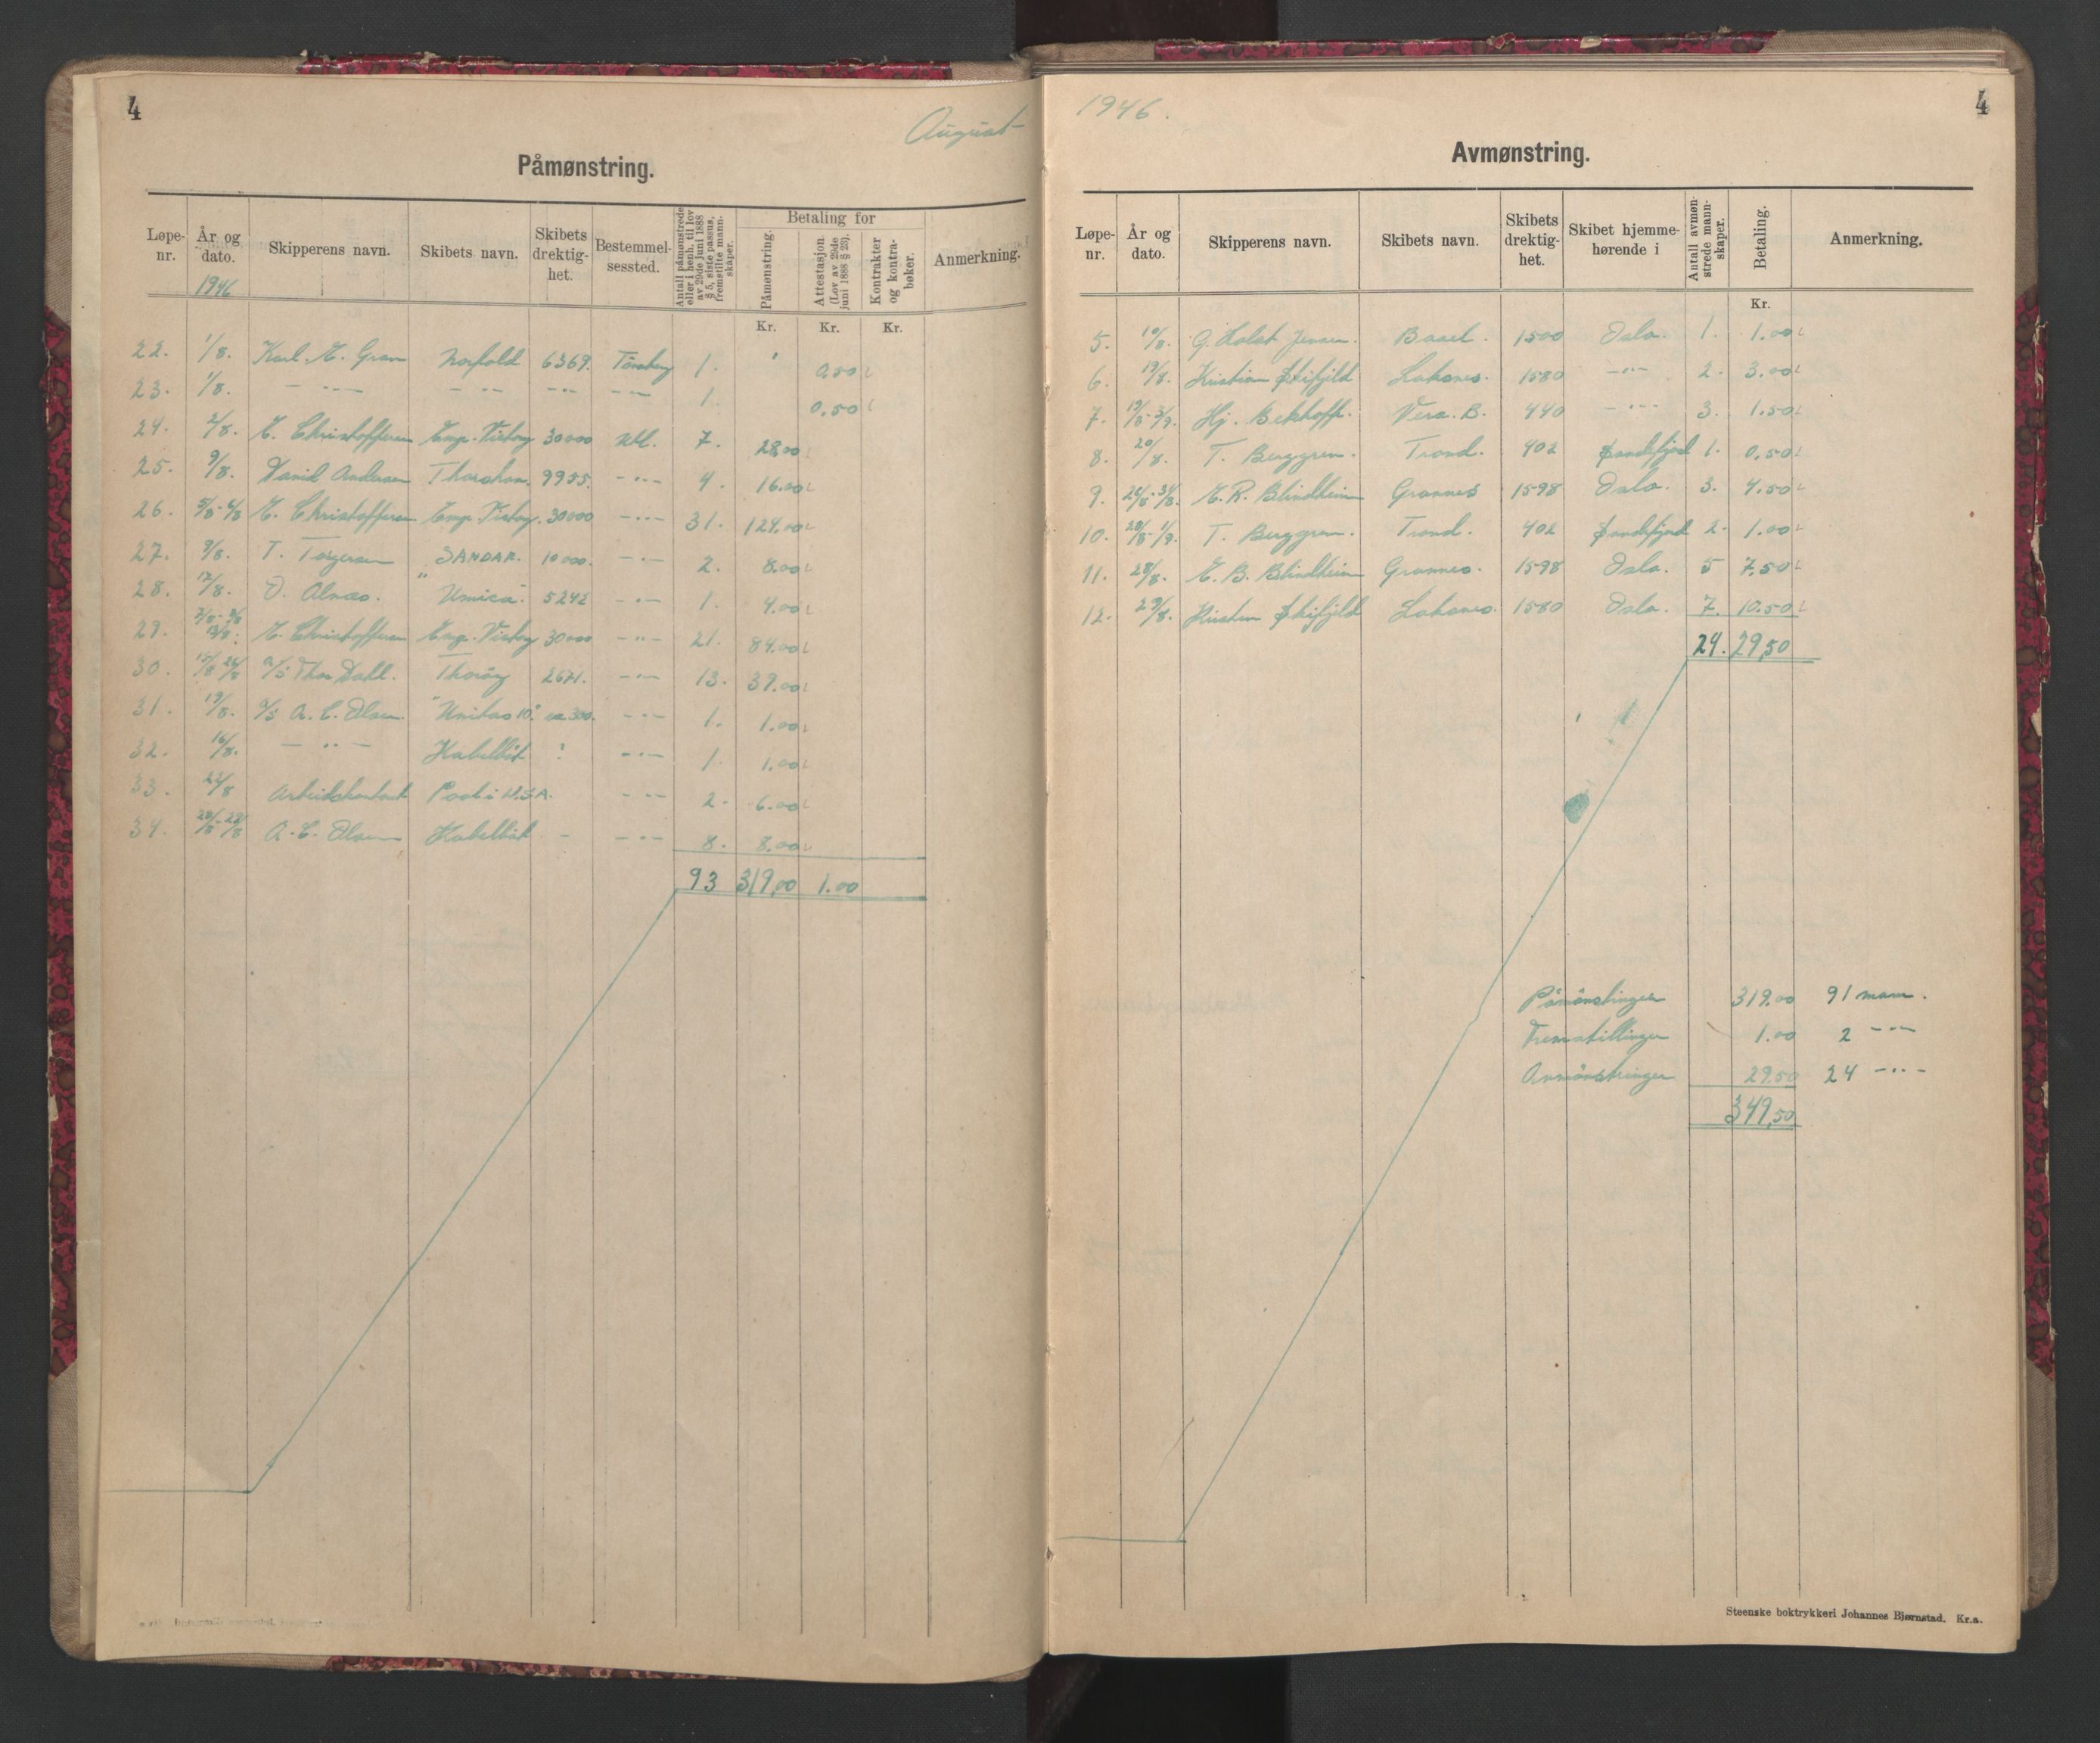 4
August
Påmønstring.
Løpe-nr. | År og dato. | Skipperens navn. | Skibets navn. | Skibets drektig-het. | Bestemmel-sessted. | Antall påmønstrede eller i henh. til lov av 29de juni 1888 § 5, siste passus, fremstilte mann-skaper. | Betaling for | Påmønstring. | Attestasjon (Lov av 29de juni 1888 § 23). | Kontrakter og kontra-bøker. | Anmerkning.
1946
Kr. Kr. Kr.
22. 1/8. Karl. E. Gran Norfold 6369. Tönsberg 1. 0,50
23. 1/8. — " — — " — — " — — " — 1. 0,50
24. 2/8. E. Christoffersen Emp. Victory 30000 Utl. 7. 28.00
25. 9/8. David Andersen Thorshov. 9955. — " — 4. 16.00
26. 5/8-6/8 E. Christoffersen Emp. Victory. 30000 — " — 31. 124.00
27. 9/8. T. Torgersen SANDAR. 10000. — " — 2. 8.00
28. 12/8. O. Alnæs. "Umica". 5242 — " — 1. 4.00
29. 13/8. E. Christoffersen Emp. Victory 30000 — " — 21. 84.00
30. 15/8 26/8 A/S Thor Dahl. Thoröy 2671. — " — 13. 39.00
31. 19/8. A/S A. C. Olsen. "Unitas 10." ca 300. — " — 1. 1.00
32. 16/8. — " — Hvalbåt ? — " — 1. 1.00
33. 22/8 Arbeidskontoret Pool i U.S.A. — " — 2. 6.00
34. 20/8-22/8 A. C. Olsen Hvalbåt - — " — 8. 8.00
93 319,00 1.00
1946.
4
Avmønstring.
Løpe-nr. | År og dato. | Skipperens navn. | Skibets navn. | Skibets drektig-het. | Skibet hjemme-hørende i | Antall avmøn-strede mann-skaper. | Betaling. | Anmerkning.
Kr.
5. 10/8. G. Holst Jensen. Basel. 1500 Oslo. 1. 1.00
6. 19/8. Kristian Skifjeld Lakanes. 1580 — " — 2. 3.00
7. 19/8-3/9. Hj. Bekhoff. Vera. B. 440 — " — 3. 1.50
8. 20/8. T. Berggren. Trond. 402 Sandefjord 1. 0,50
9. E. R. Blindheim Grannes 1598 Oslo. 3. 4.50
10. T. Berggren. Trond. 402 Sandefjord 2. 1.00
11. 28/8. E. B. Blindheim Grannes. 1598 Oslo. 5 7.50
12. 29/8. Kristen Skifjeld Lakanes. 1580 Oslo. 7. 10.50
24. 29,50
Påmönstringer 319.00 91 mann.
Fremstillinger 1.00 2 — " —
Avmönstringer 29.50 24 — " —
349,50
Steenske boktrykkeri Johannes Bjørnstad. Kr.a.